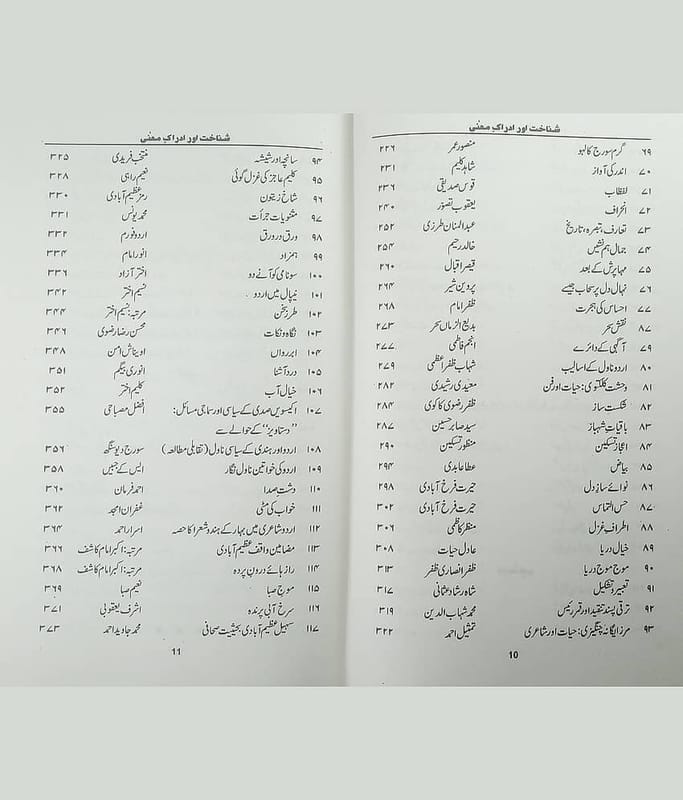 شناخت اور ادراک معنی
۶۹ گرم سورج کا لہو منصور عمر ۲۲۶
۷۰ اندر کی آواز شاہد کلیم ۲۳۱
۷۱ لفظاب قوس صدیقی ۲۳۶
۷۲ انحراف یعقوب تصور ۲۴۰
۷۳ تعارف، تبصرہ، تاریخ عبدالمنان طرزی ۲۵۲
۷۴ جمال ہم نشیں خالد رحیم ۲۵۴
۷۵ مہاپرش کے بعد قیصر اقبال ۲۶۰
۷۶ نہال دل پر سحاب جیسے پروین شیر ۲۶۴
۷۷ احساس کی ہجرت ظفر امام ۲۶۸
۸۷ نقش سحر بدیع الزماں سحر ۲۷۳
۷۹ آگہی کے دائرے انجم فاطمی ۲۷۷
۸۰ اردو ناول کے اسالیب شہاب ظفر اعظمی ۲۷۹
۸۱ وحشت کلکتوی: حیات اور فن معید رشیدی ۲۸۲
۸۲ شکست ساز ظفر رضوی کاکوی ۲۸۴
۸۳ باقیات شہباز سید صابر حسین ۲۸۷
۸۴ اعجاز تسکین منظور تسکین ۲۹۰
۸۵ بیاض عطا عابدی ۲۹۴
۸۶ نوائے ساز دل حیرت فرخ آبادی ۲۹۸
۸۷ حس التماس حیرت فرخ آبادی ۳۰۲
۸۸ اطراف غزل منظر کاظمی ۳۰۶
۸۹ خیال دریا عادل حیات ۳۰۸
۹۰ موج موج دریا ظفر انصاری ظفر ۳۱۳
۹۱ تعبیر و تشکیل شاہ رشاد عثمانی ۳۱۷
۹۲ ترقی پسند تنقید اور قمر رئیس محمد شہاب الدین ۳۱۹
۹۳ مرزا یگانہ چنگیزی: حیات اور شاعری تمثیل احمد ۳۲۲
10
شناخت اور ادراک معنی
۹۴ سانچہ اور شیشہ منتخب فریدی ۳۲۵
۹۵ کلیم عاجز کی غزل گوئی نعیم راہی ۳۲۸
۹۶ شاخ زیتون رمز عظیم آبادی ۳۳۰
۹۷ مثنویات جرأت محمد یونس ۳۳۱
۹۸ ورق در ورق اردو فورم ۳۳۲
۹۹ ہمزاد انور امام ۳۳۴
۱۰۰ سونامی کو آنے دو اختر آزاد ۳۳۶
۱۰۱ نیپال میں اردو نسیم اختر ۳۴۲
۱۰۲ طرز سخن مرتبہ: نسیم اختر ۳۴۴
۱۰۳ نگاہ و نکات محسن رضا رضوی ۳۴۶
۱۰۴ ابر رواں اویناش امن ۳۴۸
۱۰۵ درد آشنا انوری بیگم ۳۵۱
۱۰۶ خیال آب کلیم اختر ۳۵۲
۱۰۷ اکیسویں صدی کے سیاسی اور سماجی مسائل: افضل مصباحی ۳۵۵
"دستاویز" کے حوالے سے
۱۰۸ اردو اور ہندی کے سیاسی ناول (تقابلی مطالعہ) سورج دیو سنگھ ۳۵۶
۱۰۹ اردو کی خواتین ناول نگار ایس کے جبیں ۳۵۸
۱۱۰ دشت صدا احمد فرمان ۳۶۰
۱۱۱ خواب کی مٹی غفران امجد ۳۶۲
۱۱۲ اردو شاعری میں بہار کے ہندو شعرا کا حصہ اسرار احمد ۳۶۴
۱۱۳ مضامین واقف عظیم آبادی مرتبہ: اکبر امام کاشف ۳۶۶
۱۱۴ راز ہائے درون پردہ مرتبہ: اکبر امام کاشف ۳۶۸
۱۱۵ موج صبا نعیم صبا ۳۶۹
۱۱۶ سرخ آبی پرندہ اشرف یعقوبی ۳۷۱
۱۱۷ سہیل عظیم آبادی بحیثیت صحافی محمد جاوید احمد ۳۷۳
11